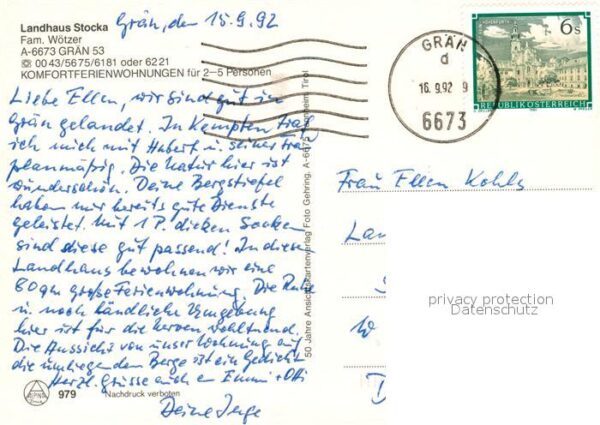 Landhaus Stocka
Fam. Wötzer
A-6673 GRÄN 53
☎ 0043/5675/6181 oder 6221
KOMFORTFERIENWOHNUNGEN für 2–5 Personen
Grän, den 15.9.92
Liebe Ellen, wir sind gut in
Grän gelandet. In Kempten traf
ich mich mit Hubert u. seiner
planmäßig. Die Natur hier ist
wunderschön. Deine Bergstiefel
haben mir bereits gute Dienste
geleistet. Mit 1 P. dicken Socken
sind diese gut passend! In diesem
Landhaus bewohnen wir eine
80 qm große Ferienwohnung. Die Ruhe
u. noch ländliche Umgebung
hier ist für die Nerven wohltuend.
Die Aussicht von unser Wohnung auf
die umliegenden Berge ist ein Gedicht
Herzl. Grüsse auch an Emmi + Otti
Deine Inge
979
Nachdruck verboten
50 Jahre Ansichtskartenverlag Foto Gehring, A-6675 Tannheim/Tirol
GRÄN
d
16. 9. 92 9
6673
6 S
REPUBLIK ÖSTERREICH
Frau Ellen Kohls
Lan
W
D
privacy protection
Datenschutz